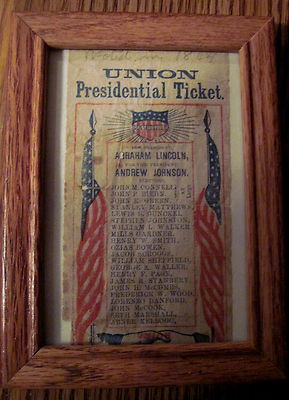 UNION
Presidential Ticket.
FOR PRESIDENT,
ABRAHAM LINCOLN,
FOR VICE PRESIDENT
ANDREW JOHNSON.
ELECTORS
JOHN M. CONNELL,
JOHN P. BIEHN,
JOHN K. GREEN,
STANLEY MATTHEWS,
LEWIS B. GUNCKEL,
STEPHEN JOHNSTON,
WILLIAM L. WALKER
MILLS GARDNER,
HENRY W. SMITH,
OZIAS BOWEN,
JACOB SCROGGS,
WILLIAM SHEFFIELD,
GEORGE A. WALLER,
HENRY F. PAGE,
JAMES R. STANBERY,
JOHN H. McCOMBS,
FREDERICK W. WOOD,
LORENZO DANFORD,
JOHN McCOOK,
SETH MARSHALL,
ABNER KELLOGG,